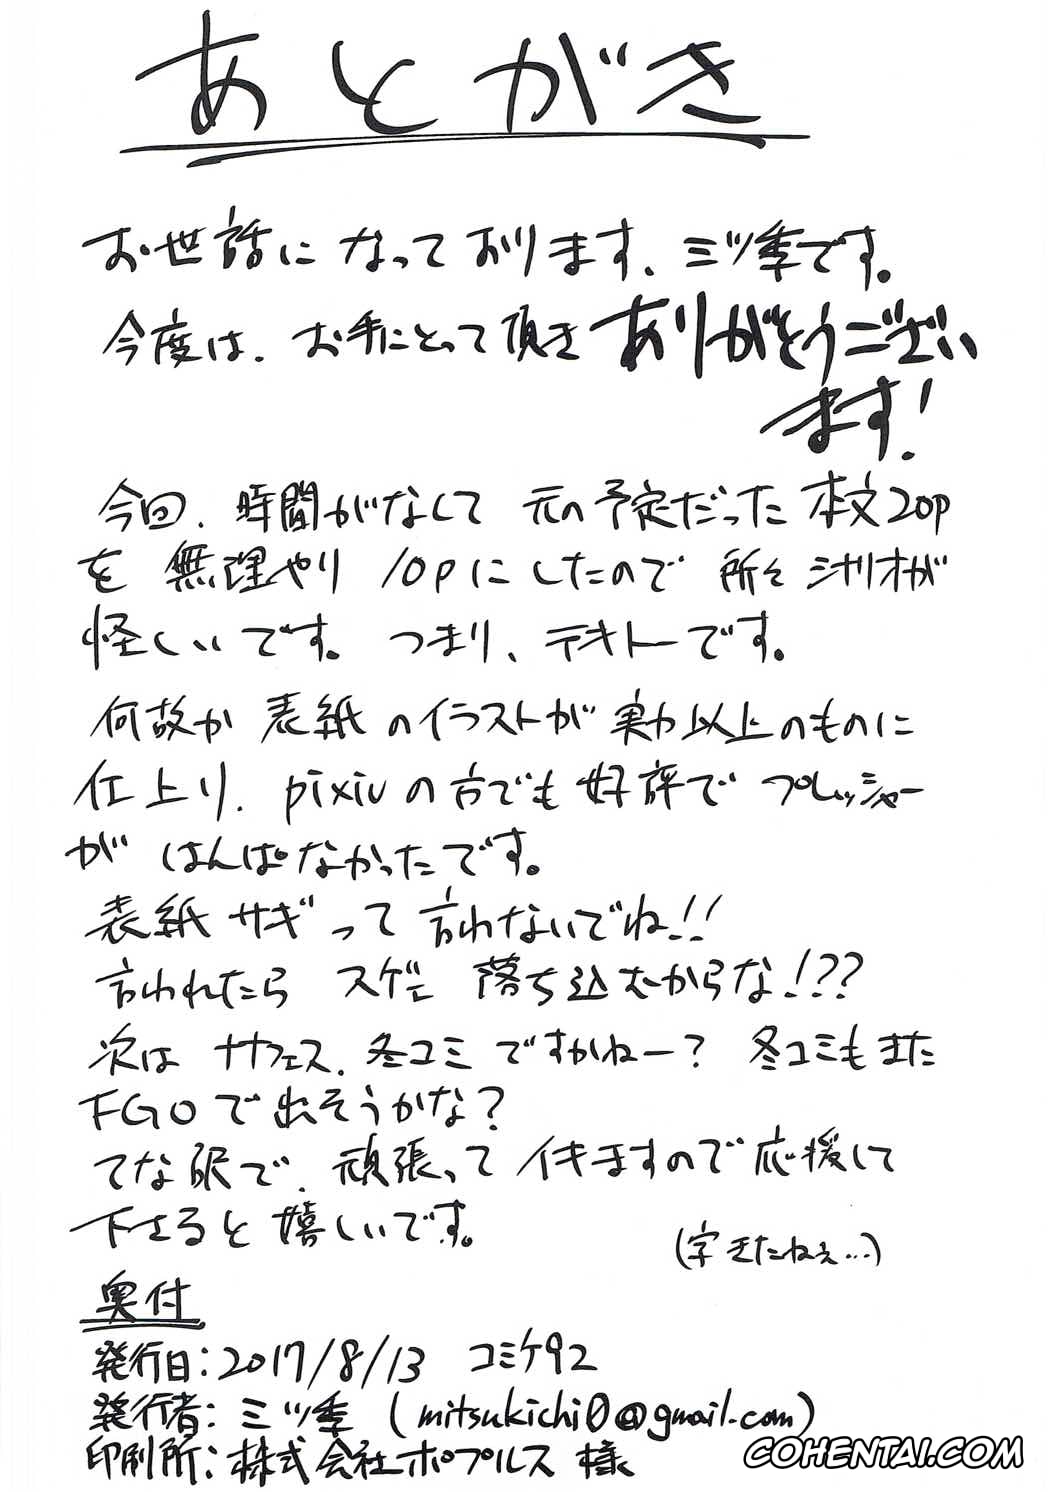 あとがき
お世話になっております、ミツ季です。
今度は、お手にとって頂きありがとうござい
ます!
今回、時間がなくて元の予定だった本文20p
を無理やり10pにしたので所々シナリオが
怪しいです。つまり、テキトーです。
何故か表紙のイラストが実力以上のものに
仕上り、pixivの方でも好評でプレッシャー
がはんぱなかったです。
表紙サギって言わないでね!!
言われたらスゲェ落ち込むからな!??
次はサナフェス、冬コミですかねー?冬コミもまた
FGOで出そうかな?
てな訳で、頑張ってイキますので応援して
下さると嬉しいです。
(字きたねぇ…)
奥付
発行日:2017/8/13 コミケ92
発行者:ミツ季(mitsukichi0@gmail.com)
印刷所:株式会社ポプルス様
COHENTAI.COM